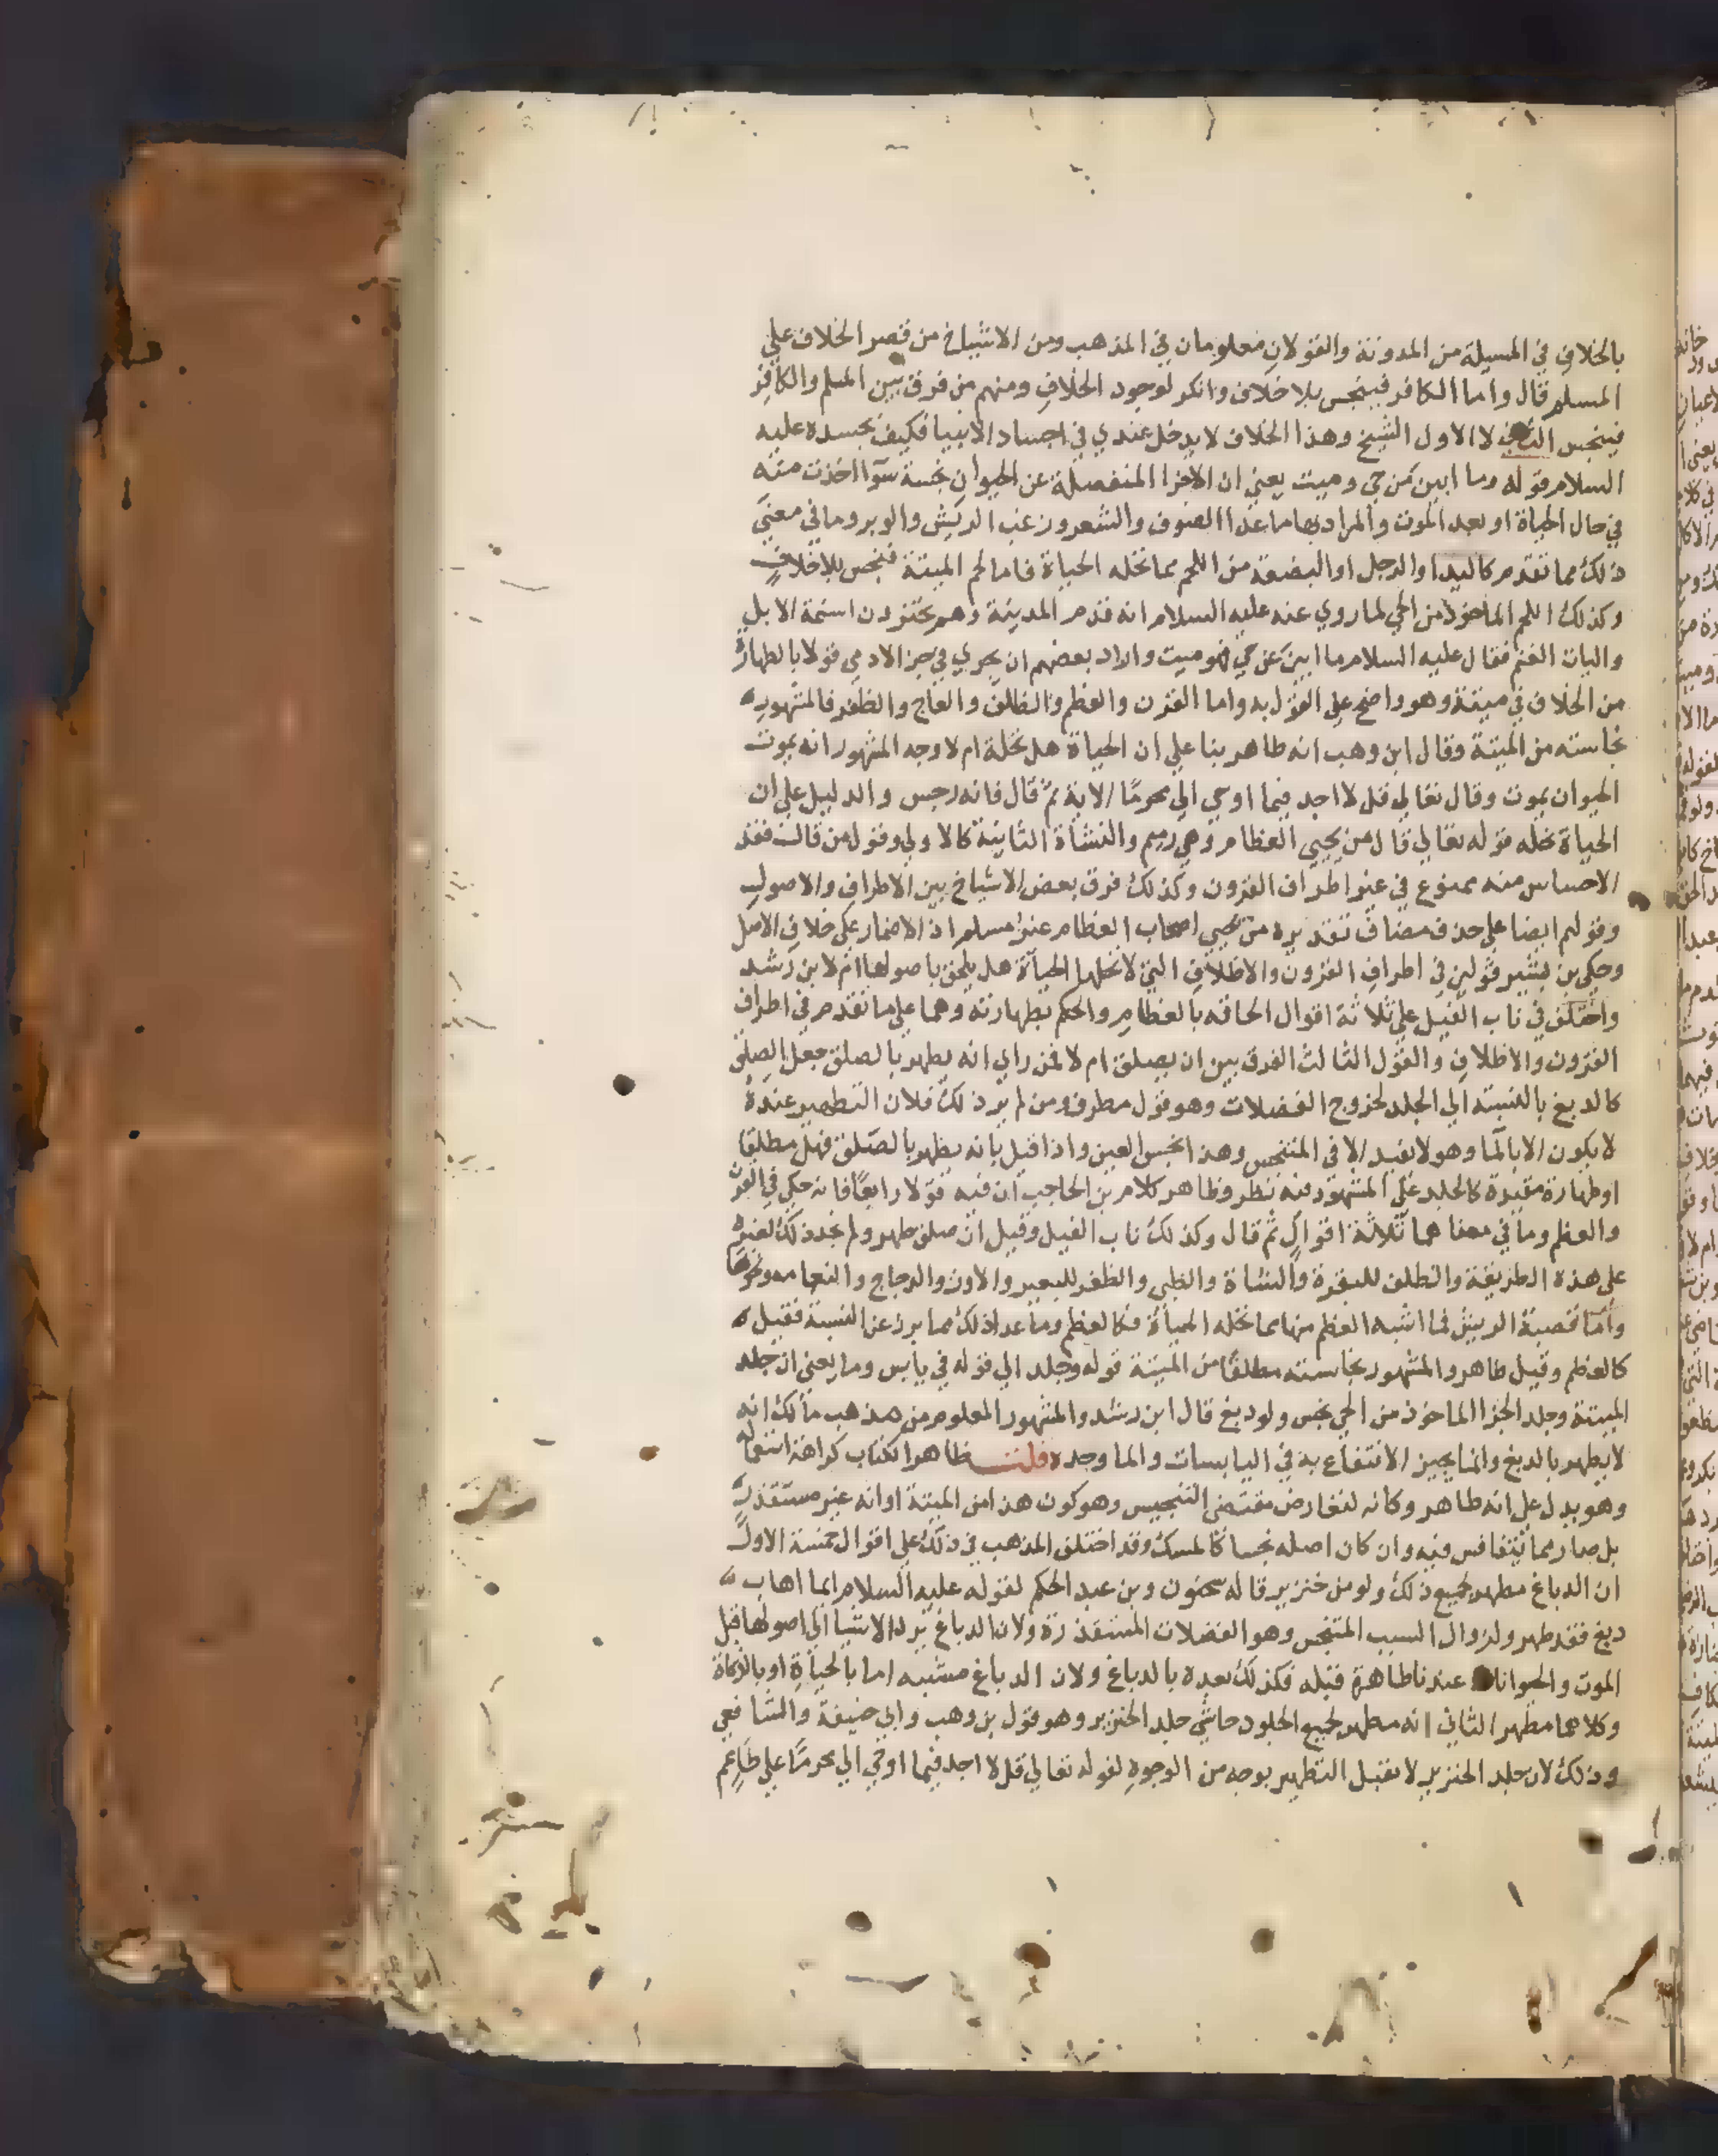 بالخلاف في المسيلة من المدونة والقولان معلومان في المذهب ومن الاشياخ من قصر الخلاف علي
المسلم قال واما الكافر فينجس بلا خلاف وانكر لوجود الخلاف ومنهم من فرق بين المسلم والكافر
فينجس الثاني لا الاول الشيخ وهذا الخلاف لا يدخل عندي في اجساد الانبيا فكيف بجسده عليه
السلام قوله وما ابين من حي وميت يعني ان الاجزا المنفصلة عن الحيوان نجسة سوآ اخذت منه
في حال الحياة او بعد الموت والمراد بها ما عدا الصوف والشعر وزغب الريش والوبر وما في معني
ذلك مما تقدم كاليد او الرجل او البضعة من اللحم مما تحله الحياة فاما لحم الميتة فنجس بلا خلاف
وكذلك اللحم الماخوذ من الحي لما روي عنه عليه السلام انه قدم المدينة وهم يجتزون اسنمة الابل
واليات الغنم فقال عليه السلام ما ابين عن حي فهو ميت واراد بعضهم ان يجري في جز الادمي قولا بالطهارة
من الخلاف في ميتته وهو واضح علي القول به واما القرن والعظم والظلف والعاج والظفر فالمشهور
نجاسته من الميتة وقال ابن وهب انه طاهر بنا علي ان الحياة هل تحله ام لا وجه المشهور انه بموت
الحيوان يموت وقال تعالي قل لا اجد فيما اوحي الي محرمًا الاية ثم قال فانه رجس والدليل علي ان
الحياة تحله قوله تعالي قال من يحيي العظام وهي رميم والنشاة الثانية كالاولي وقول من قال فقد
الاحساس منه ممنوع في غير اطراف القرون وكذلك فرق بعض الاشياخ بين الاطراف والاصول
وقولهم ايضا علي حذف مضاف تقديره من يحيي اصحاب العظام غير مسلم اذ الاضمار علي خلاف الاصل
وحكي بن بشير قولين في اطراف القرون والاظلاف التي لا تحلها الحياة هل يلحق باصولها ام لا بن رشد
واختلف في ناب الفيل علي ثلاثة اقوال الحاقه بالعظام والحكم بطهارته وهما علي ما تقدم في اطراف
القرون والاظلاف والقول الثالث الفرق بين ان يصلق ام لا فمن راي انه يطهر بالصلق جعل الصلق
كالدبغ بالنسبة الي الجلد لخروج الفضلات وهو قول مطرف ومن لم ير ذلك فلان التطهير عنده
لا يكون الا بالما وهو لا يفيد الا في المتنجس وهذا نجس العين واذا قيل بانه يطهر بالصلق فهل مطلقا
او طهارة مقيدة كالجلد علي المشهور فيه نظر وظاهر كلام بن الحاجب ان فيه قولا رابعًا فانه حكي في القرن
والعظم وما في معناهما ثلاثة اقوال ثم قال وكذلك ناب الفيل وقيل ان صلق طهر ولم نجد ذلك لغيره
علي هذه الطريقة والظلف للبقرة والشاة والظبي والظفر للبعير والاوز والدجاج والنعامه ونحوها
واما قصبة الريش فما اشبه العظم منها مما تحله الحياة فكالعظم وما عدا ذلك مما برز عن القصبة فقيل
كالعظم وقيل طاهر والمشهور نجاسته مطلقًا من الميتة قوله وجلد الي قوله في يابس وما يعني ان جلد
الميتة وجلد الجزا الماخوذ من الحي نجس ولو دبغ قال ابن رشد والمشهور المعلوم من مذهب مالك انه
لا يطهر بالدبغ وانما يجيز الانتفاع به في اليابسات والما وحده قلت ظاهر الكتاب كراهة استعماله
وهو يدل علي انه طاهر وكانه لتعارض مقتضي التنجيس وهو كون هذا من الميتة او انه غير مستقذر
بل صار مما يتنافس فيه وان كان اصله نجسا كالمسك وقد اختلف المذهب في ذلك علي اقوال خمسة الاول
ان الدباغ مطهر لجميع ذلك ولو من خنزير قاله سحنون وبن عبد الحكم لقوله عليه السلام ايما اهاب
دبغ فقد طهر ولزوال السبب المتنجس وهو الفضلات المستقذرة ولان الدباغ يرد الاشيا الي اصولها قبل
الموت والحيوانات عندنا طاهرة قبله فكذلك بعده بالدباغ ولان الدباغ مشبه اما بالحياة او بالذكاة
وكلاهما مطهر الثاني انه مطهر لجميع الجلود حاشي جلد الخنزير وهو قول بن وهب وابي حنيفة والشافعي
وذلك لان جلد الخنزير لا يقبل التطهير بوجه من الوجوه لقوله تعالي قل لا اجد فيما اوحي الي محرمًا علي طاعم